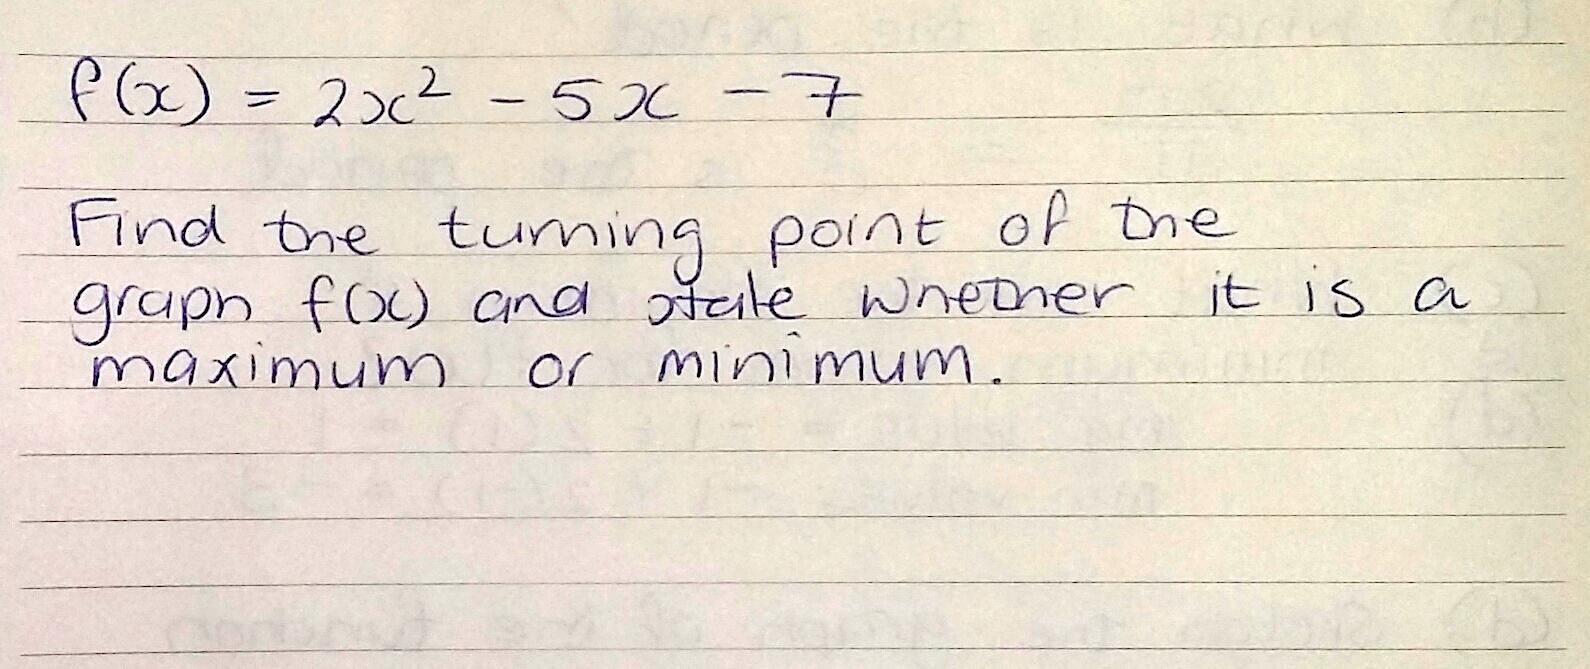 f(x) = 2x² - 5x - 7
Find the turning point of the
graph f(x) and state whether it is a
maximum or minimum.